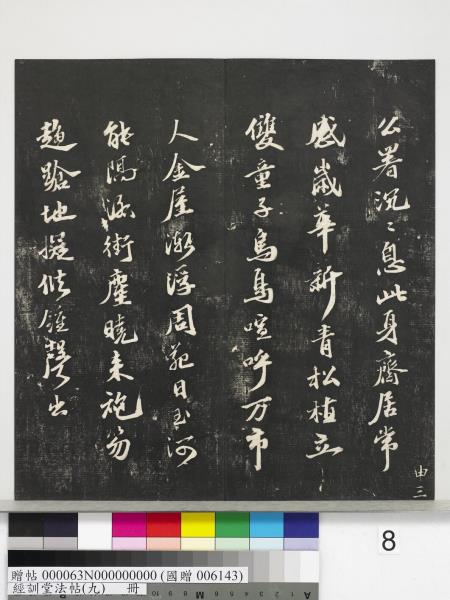 公署沉〻息此身齋居常
感歲華新青松植立
雙童子烏鳥喧呼万市
人金屋漸浮周苑日玉河
能隔漲街塵曉來袍笏
趨蹌地擬候鐘聲出
由三
8
贈帖 000063N000000000 (國贈 006143)
經訓堂法帖(九) 冊